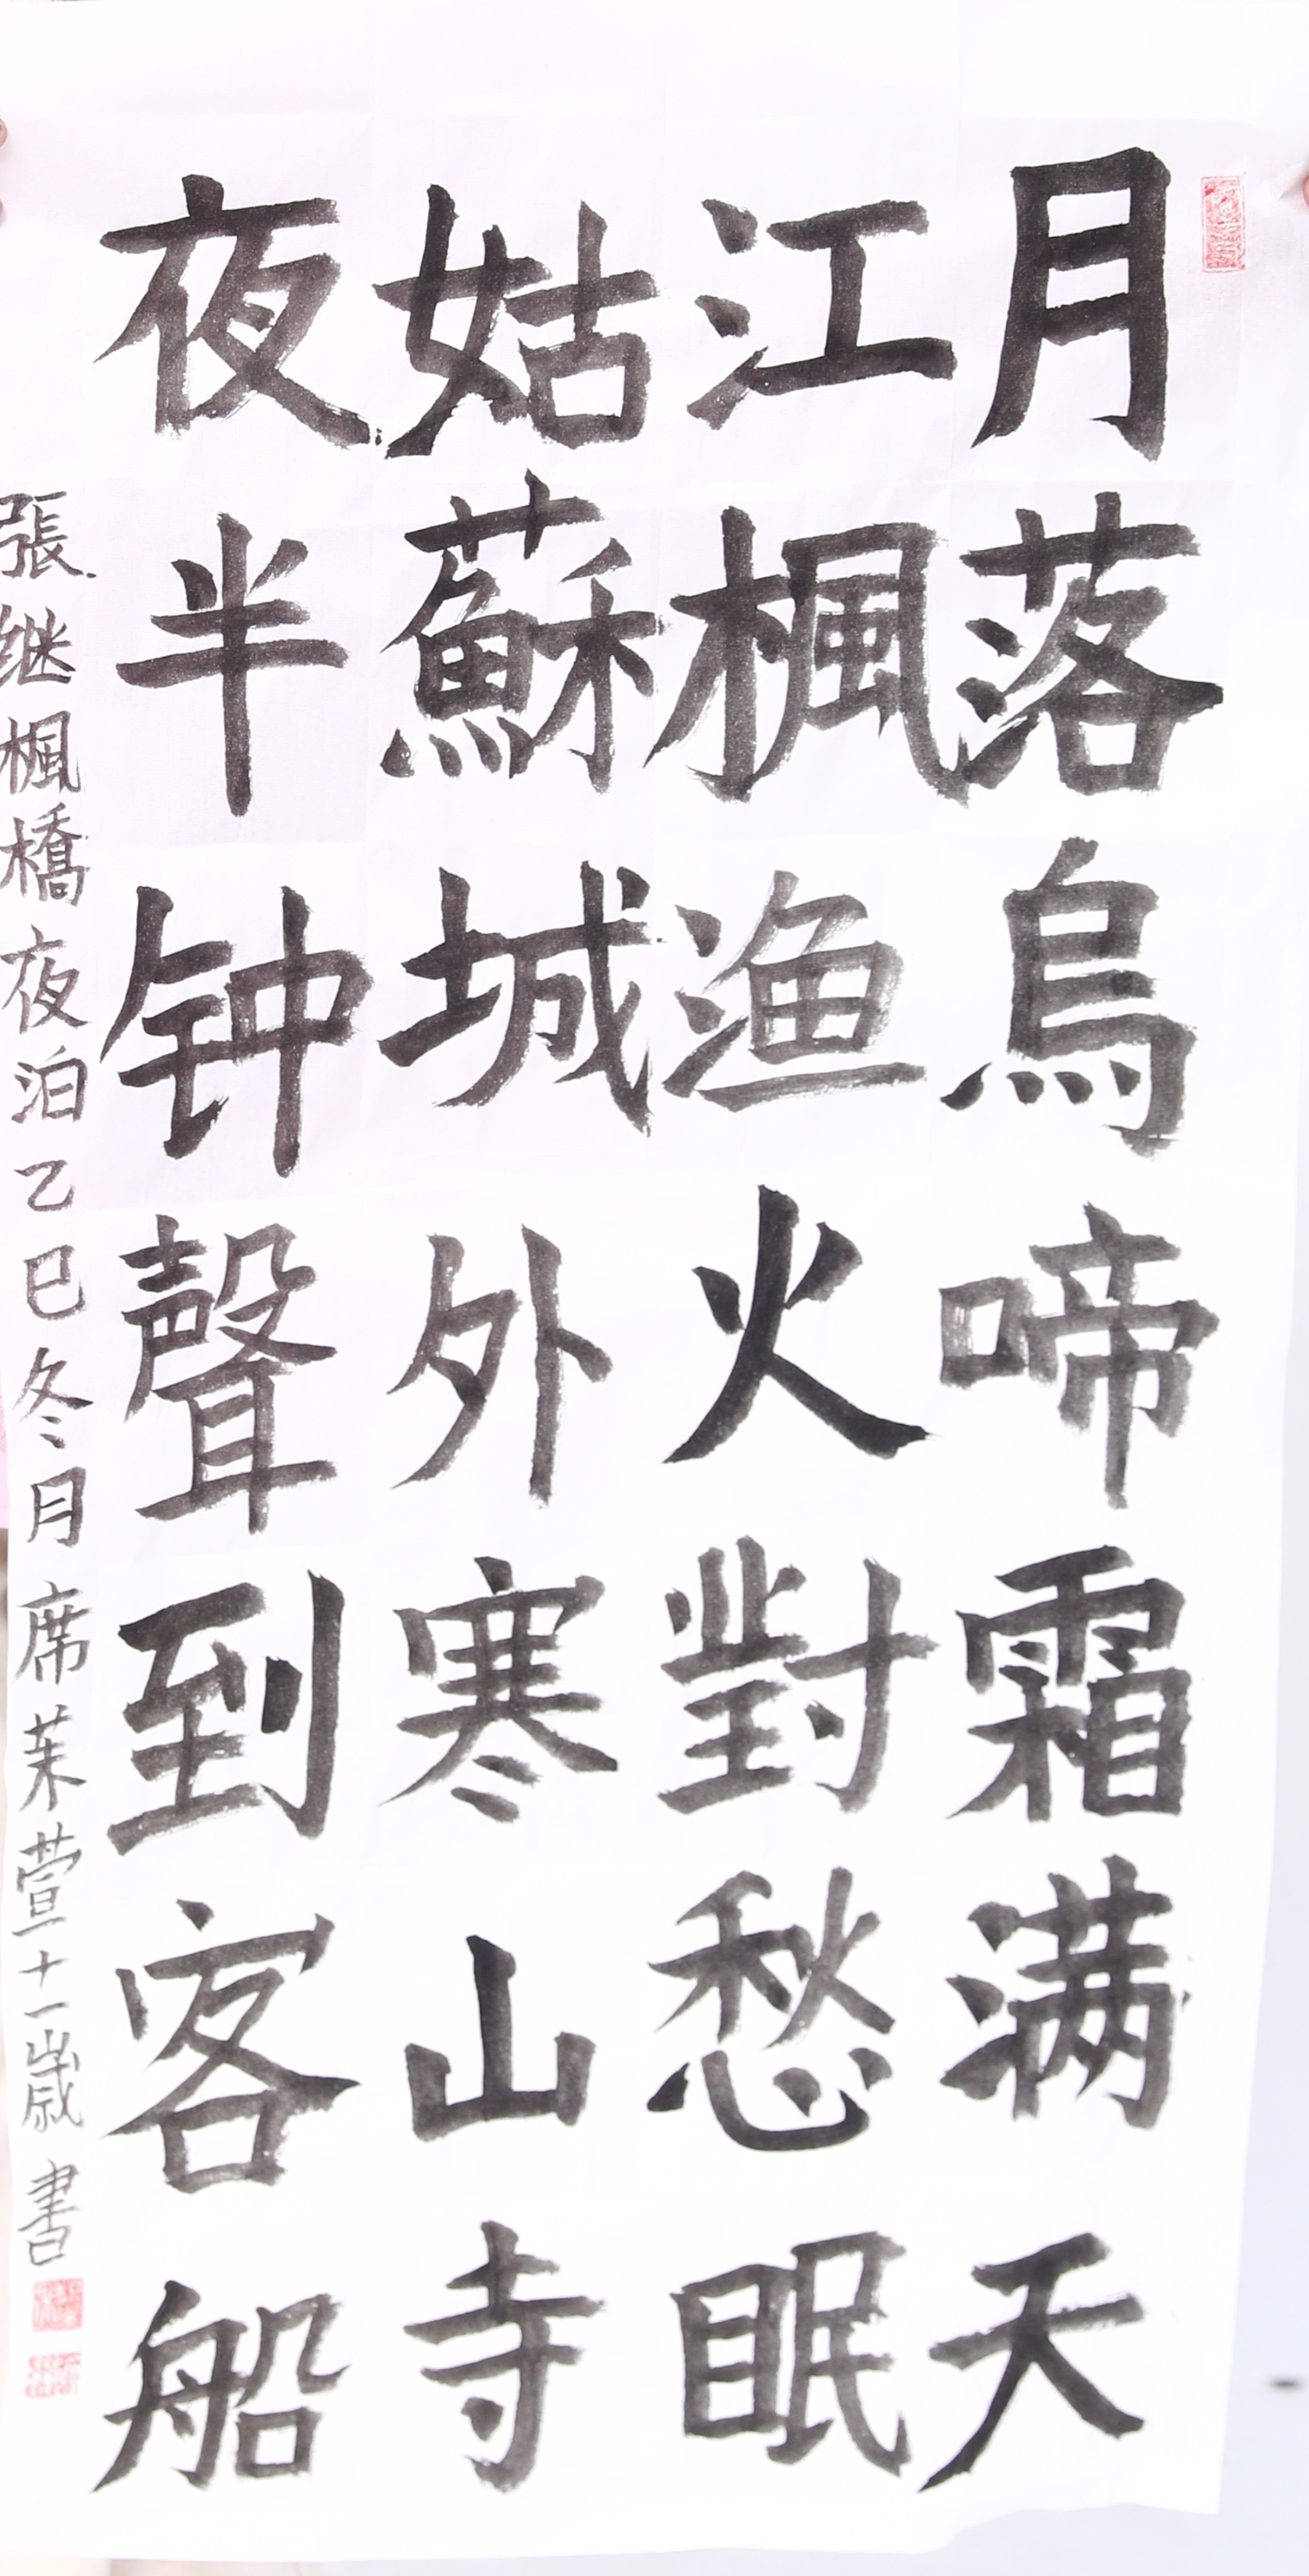 月落烏啼霜满天
江楓渔火對愁眠
姑蘇城外寒山寺
夜半钟聲到客船
張继楓橋夜泊乙巳冬月席茉萱十一歲書